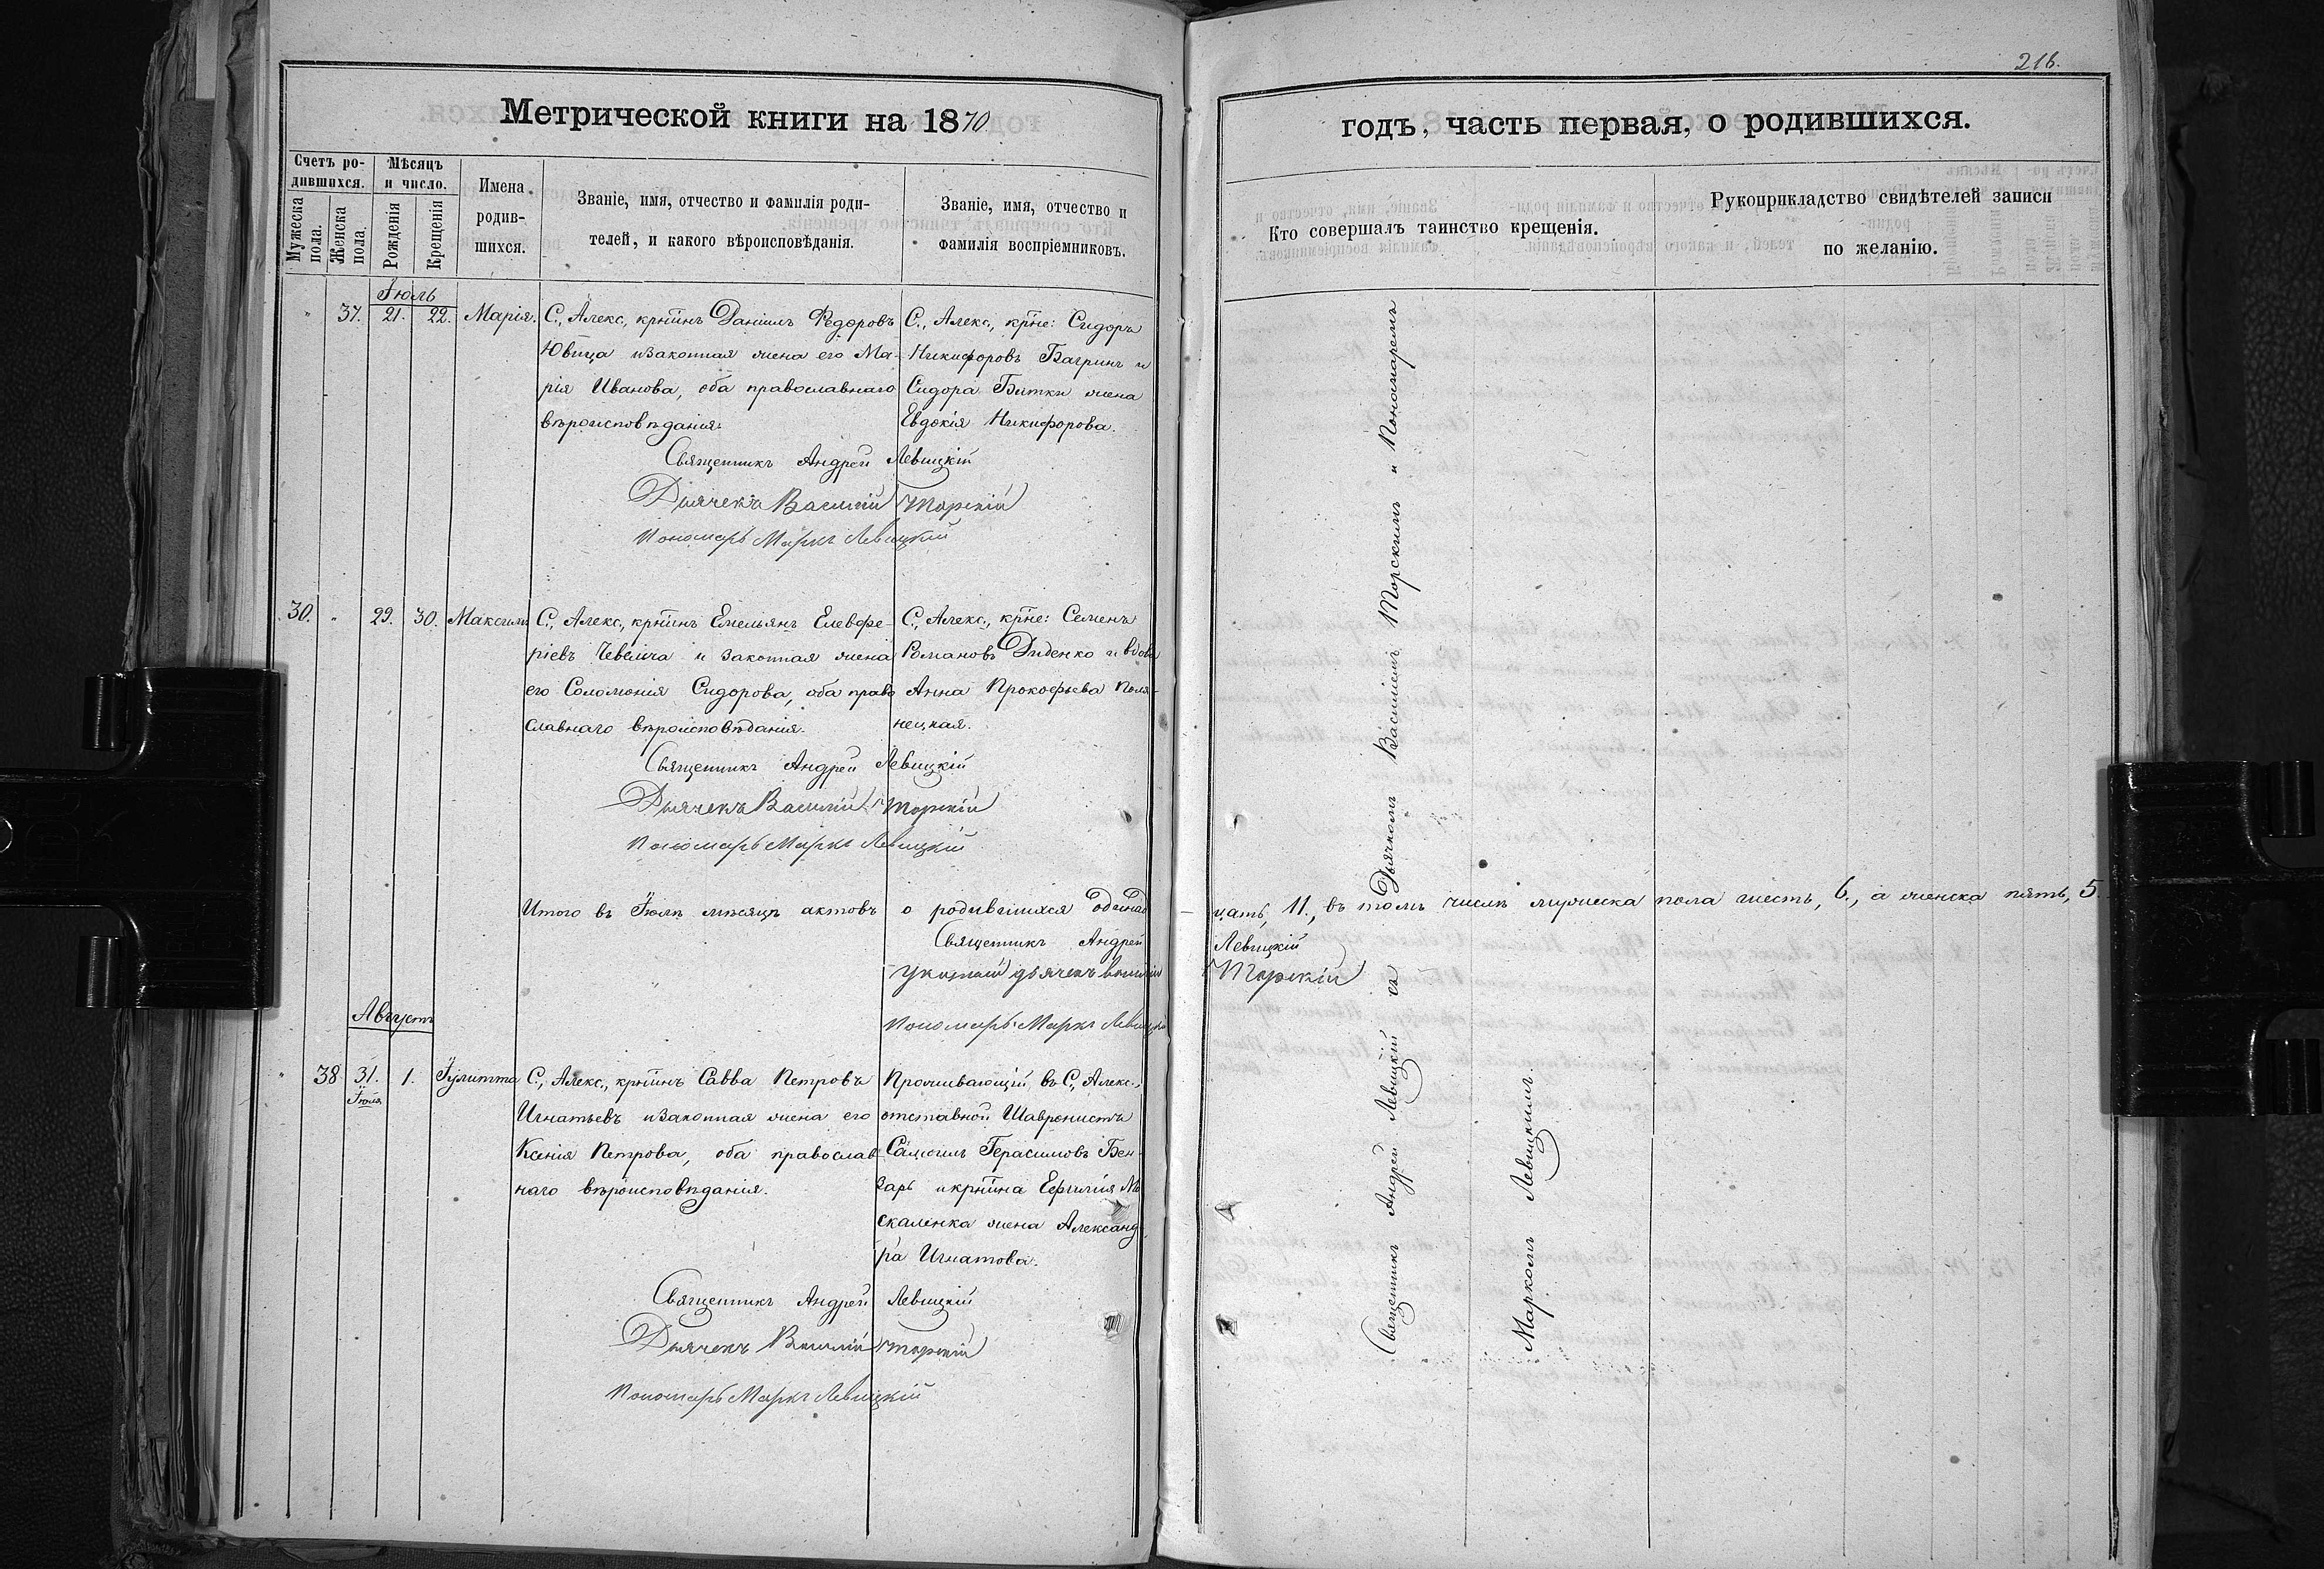 216.
Метрической книги на 1870
годъ, часть первая, о родившихся.
Счетъ ро-
дившихся.
Мужеска
пола.
Женска
пола.
Мѣсяцъ
и число.
Рожденія
Крещенія
Имена
родив-
шихся.
Званіе, имя, отчество и фамилія роди-
телей, и какого вѣроисповѣданія.
Званіе, имя, отчество и
фамилія воспріемниковъ.
Кто совершалъ таинство крещенія.
Рукоприкладство свидѣтелей записи
по желанію.
Іюль
" 37. 21. 22. Марія.
С., Алекс., крѣтинъ Даніилъ Ѳедоровъ
Ювпца и законная жена его Ма-
рія Иванова, оба православнаго
вѣроисповѣданія.
С., Алекс., крѣне: Сидоръ
Никифоровъ Багринъ и
Сидора Битки жена
Евдокія Никифорова.
Священникъ Андрей Левицкій
Дьячекъ Василій Торскій
Пономарь Маркъ Левицкій
30. " 29. 30. Максимъ
С., Алекс., крѣтинъ Емельянъ Елевфе-
ріевъ и законная жена
его Соломонія Сидорова, оба право
славнаго вѣроисповѣданія.
С., Алекс., крѣне: Семенъ
Романовъ Диденко и вдова
Анна Прокофьева Поля-
нецкая.
Священникъ Андрей Левицкій
Дьячекъ Василій Торскій
Пономарь Маркъ Левицкій
Итого въ Іюлѣ мѣсяцѣ актовъ о родившихся одинад
цать, 11., въ томъ числѣ мужеска пола шесть, 6., а женска пять, 5.
Священникъ Андрей
Левицкій
дьячекъ Василій
Торскій
Пономарь Маркъ Левицкій
Августъ
" 38 31. 1. Іулитта
Іюля
С., Алекс., крѣтинъ Савва Петровъ
Игнатьевъ и законная жена его
Ксенія Петрова, оба православ
наго вѣроисповѣданія.
Проживающій въ С., Алекс.,
отставной
Самоилъ Герасимовъ Бен-
зарь и крѣтина Ефимія Мо
скаленка жена Александ
ра Игнатова.
Священникъ Андрей Левицкій
Дьячекъ Василій Торскій
Пономарь Маркъ Левицкій
Священникъ Андрей Левицкій съ Дьячкомъ Василіемъ Торскимъ и Пономаремъ
Маркомъ Левицкимъ.